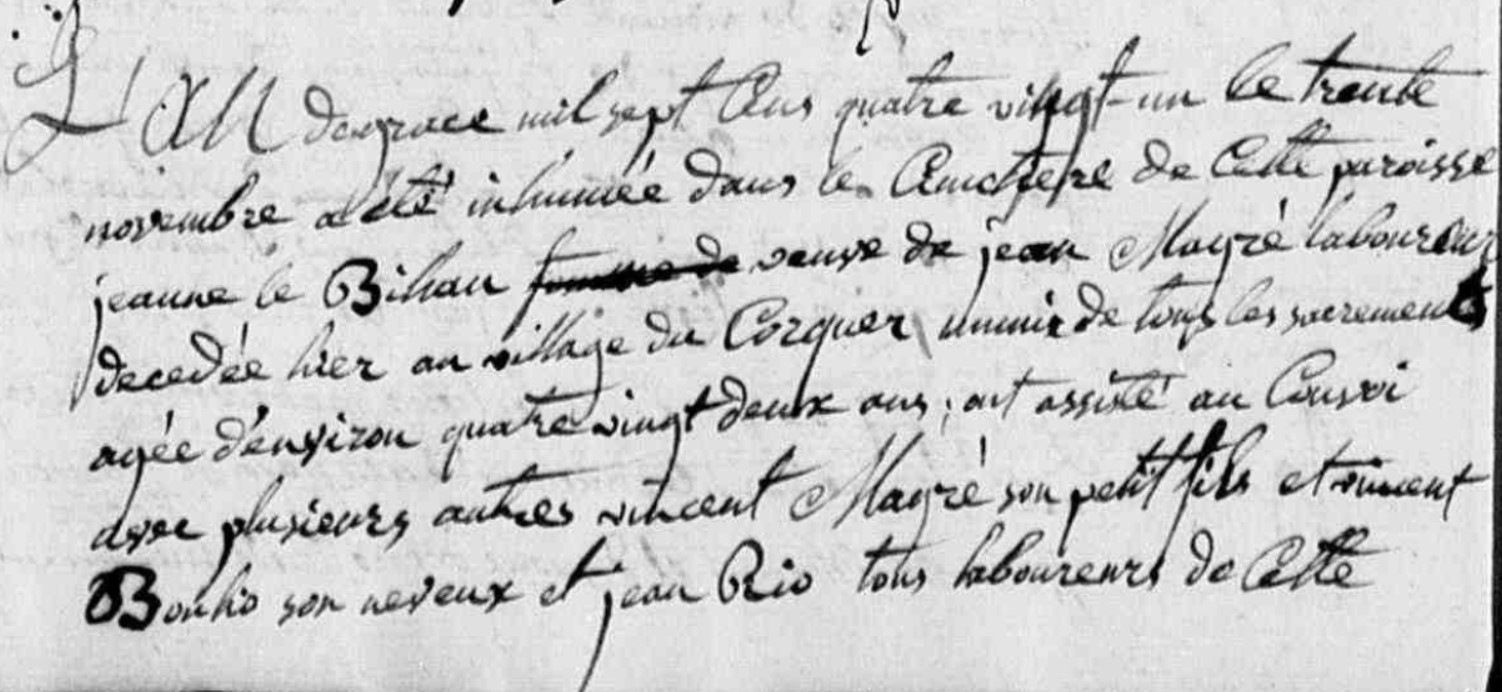 L'AN degrace mil sept Cens quatre vingt-un le trente
novembre a été inhumée dans le Cimetiere de Cette paroisse
jeanne le Bihan femme de veuve de jean Mayrè laboureur
decedée hier au village du Corquer munir de tous les sacrements
agée d'environ quatre vingt deux ans ; ont assisté au Convoi
avec plusieurs autres vincent Mayrè son petit fils et vincent
Bouhio son neveux et jean Rio tous laboureurs de Cette